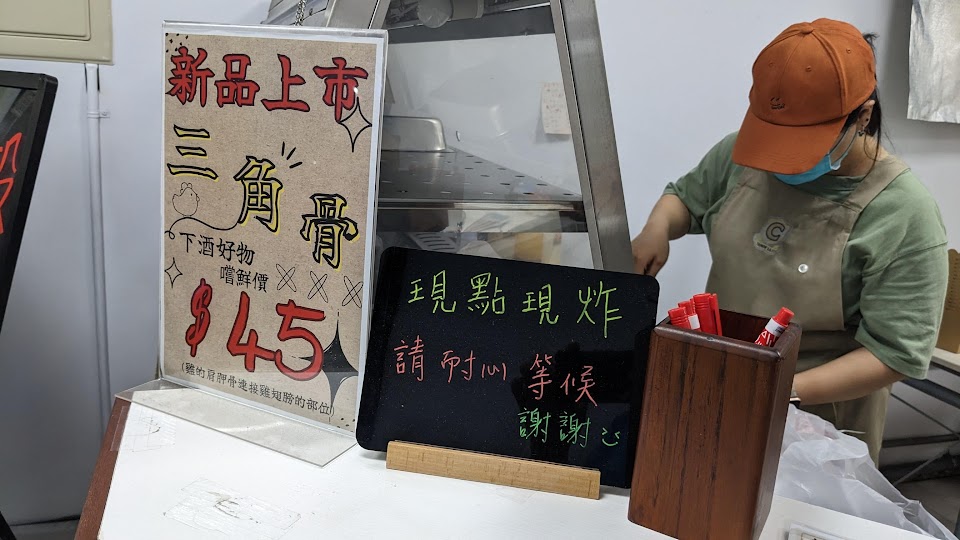 新品上市
三角骨
下酒好物
嚐鮮價
$45
(雞的肩胛骨連接雞翅膀的部位)
現點現炸
請耐心等候
謝謝